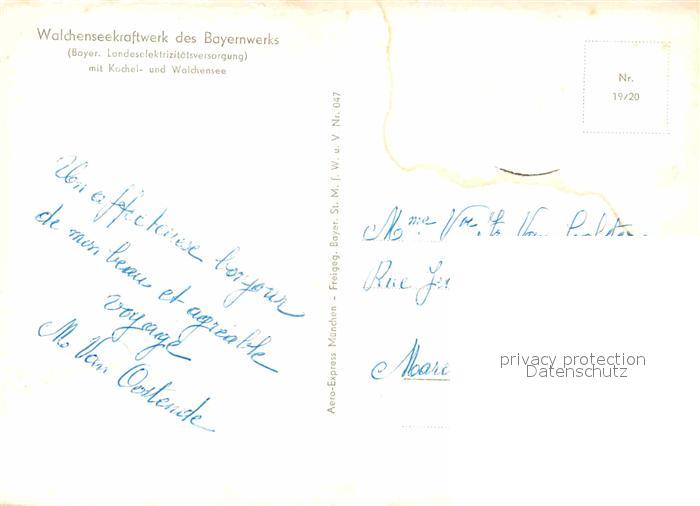 Walchenseekraftwerk des Bayernwerks
(Bayer. Landeselektrizitätsversorgung)
mit Kochel- und Walchensee
Un affectueuse bonjour
de mon beau et agréable
voyage
M. Van Oostende
Aero-Express München - Freigeg. Bayer. St. M. f. W. u. V Nr. 047
Nr.
19/20
Mme Vve
Rue
privacy protection
Datenschutz